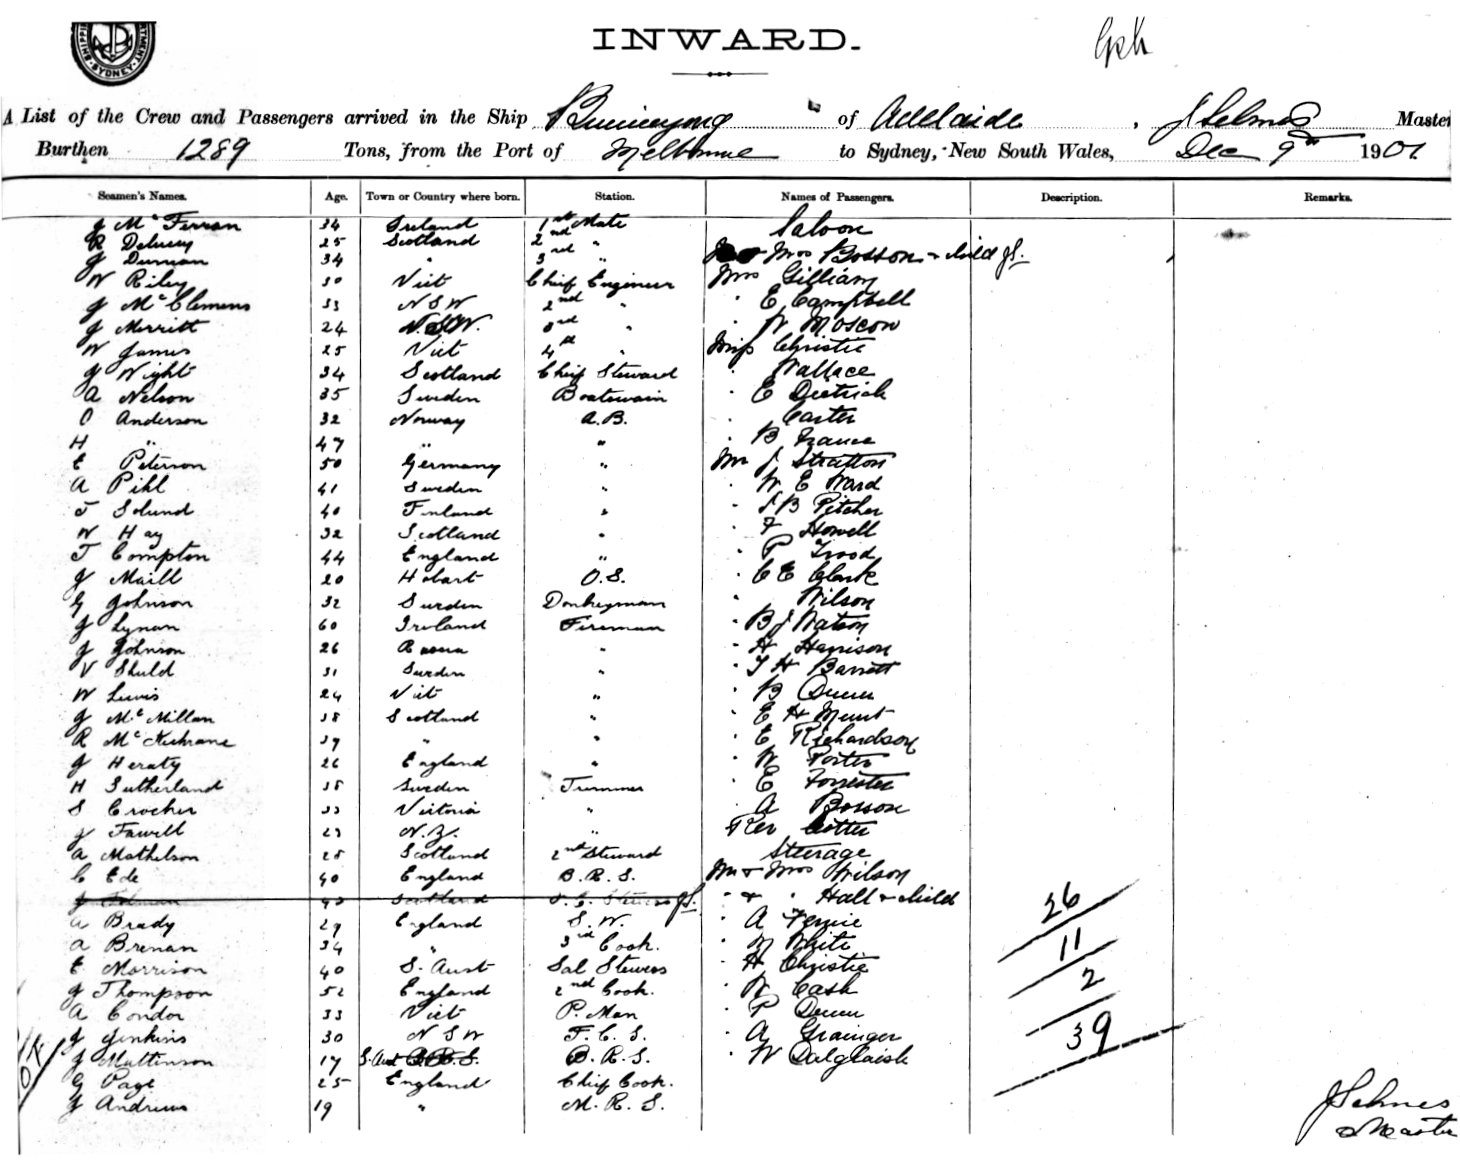 INWARD.
A List of the Crew and Passengers arrived in the Ship Buninyong of Adelaide, J Selmes Master
Burthen 1289 Tons, from the Port of Melbourne to Sydney, New South Wales, Dec 9th 1901
Seamen's Names. Age. Town or Country where born. Station. Names of Passengers. Description. Remarks.
J McFerran 34 Ireland 1st Mate Saloon
R Delury 25 Scotland 2nd " Mrs Bosson & child JS.
J Duncan 34 " 3rd "
W Riley 30 Vict Chief Engineer Mrs Gilliam
J McClemens 33 N S W 2nd " " E Campbell
J Merritt 24 N.S.W. 3rd " " W Moscow
W James 25 Vict 4th " Miss Christie
J Wight 34 Scotland Chief Steward " Wallace
A Nelson 35 Sweden Boatswain " E Dietrich
O Anderson 32 Norway A.B. " Carter
H " 47 " " " B France
E Peterson 50 Germany " Mr J Stratton
A Pihl 41 Sweden " " W E Ward
J Solund 40 Finland " " S B Pitcher
W Hay 32 Scotland " " F Howell
T Compton 44 England " " P Trood
J Maill 20 Hobart O.S. " C E Clark
G Johnson 32 Sweden Donkeyman " Wilson
J Lynan 60 Ireland Fireman " B J Watson
J Johnson 26 Russia " " H Harrison
V Shuld 31 Sweden " " T H Barrett
W Lewis 24 Vict " " B Dunn
J McMillan 38 Scotland " " E H Munt
R McKechrane 39 " " " E Richardson
J Heraty 26 England " " W Porter
H Sutherland 38 Sweden Trimmer " E Forrester
S Crocker 33 Victoria " " A Bosson
J Fawell 23 N.Z. " Rev Cotter
A Mathelson 28 Scotland 2nd Steward Steerage
C Ede 40 England B.R.S. Mr & Mrs Wilson
Scotland JS. " & " Hall & child 26
A Brady 29 England S.W. " A Fernie
A Brenan 34 " 3rd Cook. " M White 11
E Morrison 40 S. Aust Sal Stewess " H Christie
J Thompson 52 England 2nd Cook. " W Cash 2
A Condor 33 Vict P. Man " P Dunn
J Jenkins 30 N S W F.C.S. " A Grainger 39
J Mattinson 17 S. Aust B.R.S. " W Dalgleish
G Page 25 England Chief Cook.
J Andrews 19 " M.R.S.
J Selmes
Master